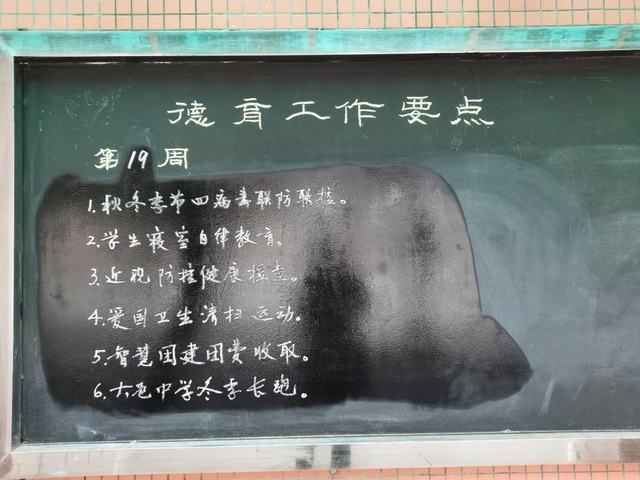 德育工作要点
第19周
1.秋冬季节四病毒联防联控。
2.学生寝室自律教育。
3.近视防控健康检查。
4.爱国卫生清扫运动。
5.智慧团建团费收取。
6.六色中学冬季长跑。